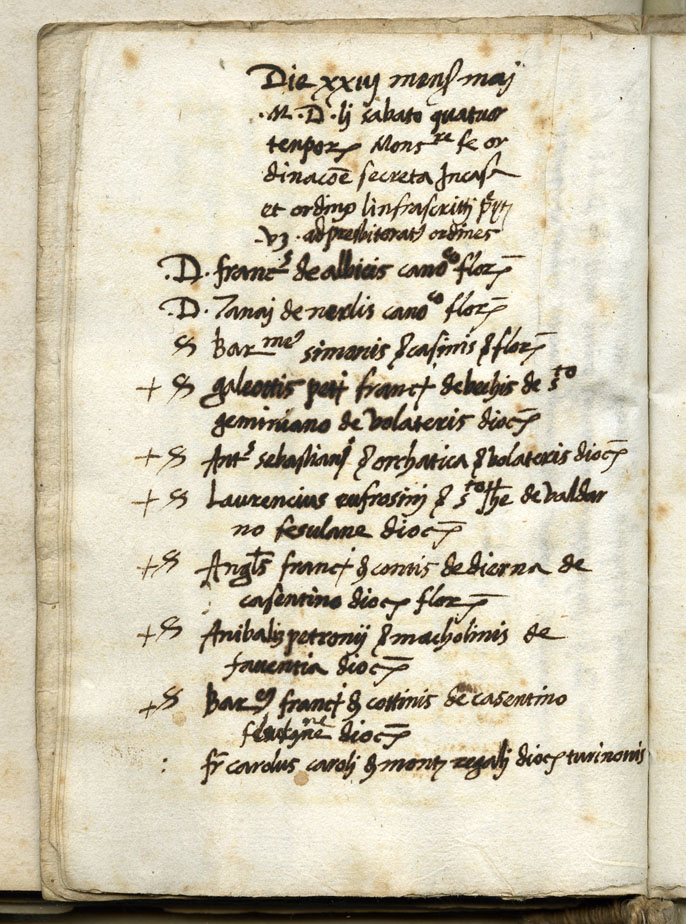 Die xxiij mens maij
.M.D.lj sabato quatuor
tenpor Mons.re fe or
dinacoē secreta Incasa
et ordinò linfrascritti
.vz. adpresbiteratus ordines
.D. franc.s de albicis cano.co flor
.D. Zanaj de nerlis cano.co flor
S Bar.meus simonis casinis flor
+ S galeottis petri francj debechis de s.to
geminiano de volateris dioc
+ S Ant.s sebastianj orchatica volateris dioc
+ S Laurencius eufrosinj s.to de valdar
no fesulane dioc
+ S Angls francj contis dedierna de
casentino dioc flor
+ S Anibalis petronij macholinis de
faventia dioc
+ S Bar.eus francj cottinis de casentino
dioc
: fr carolus carolj mont regalj dioc turinonis